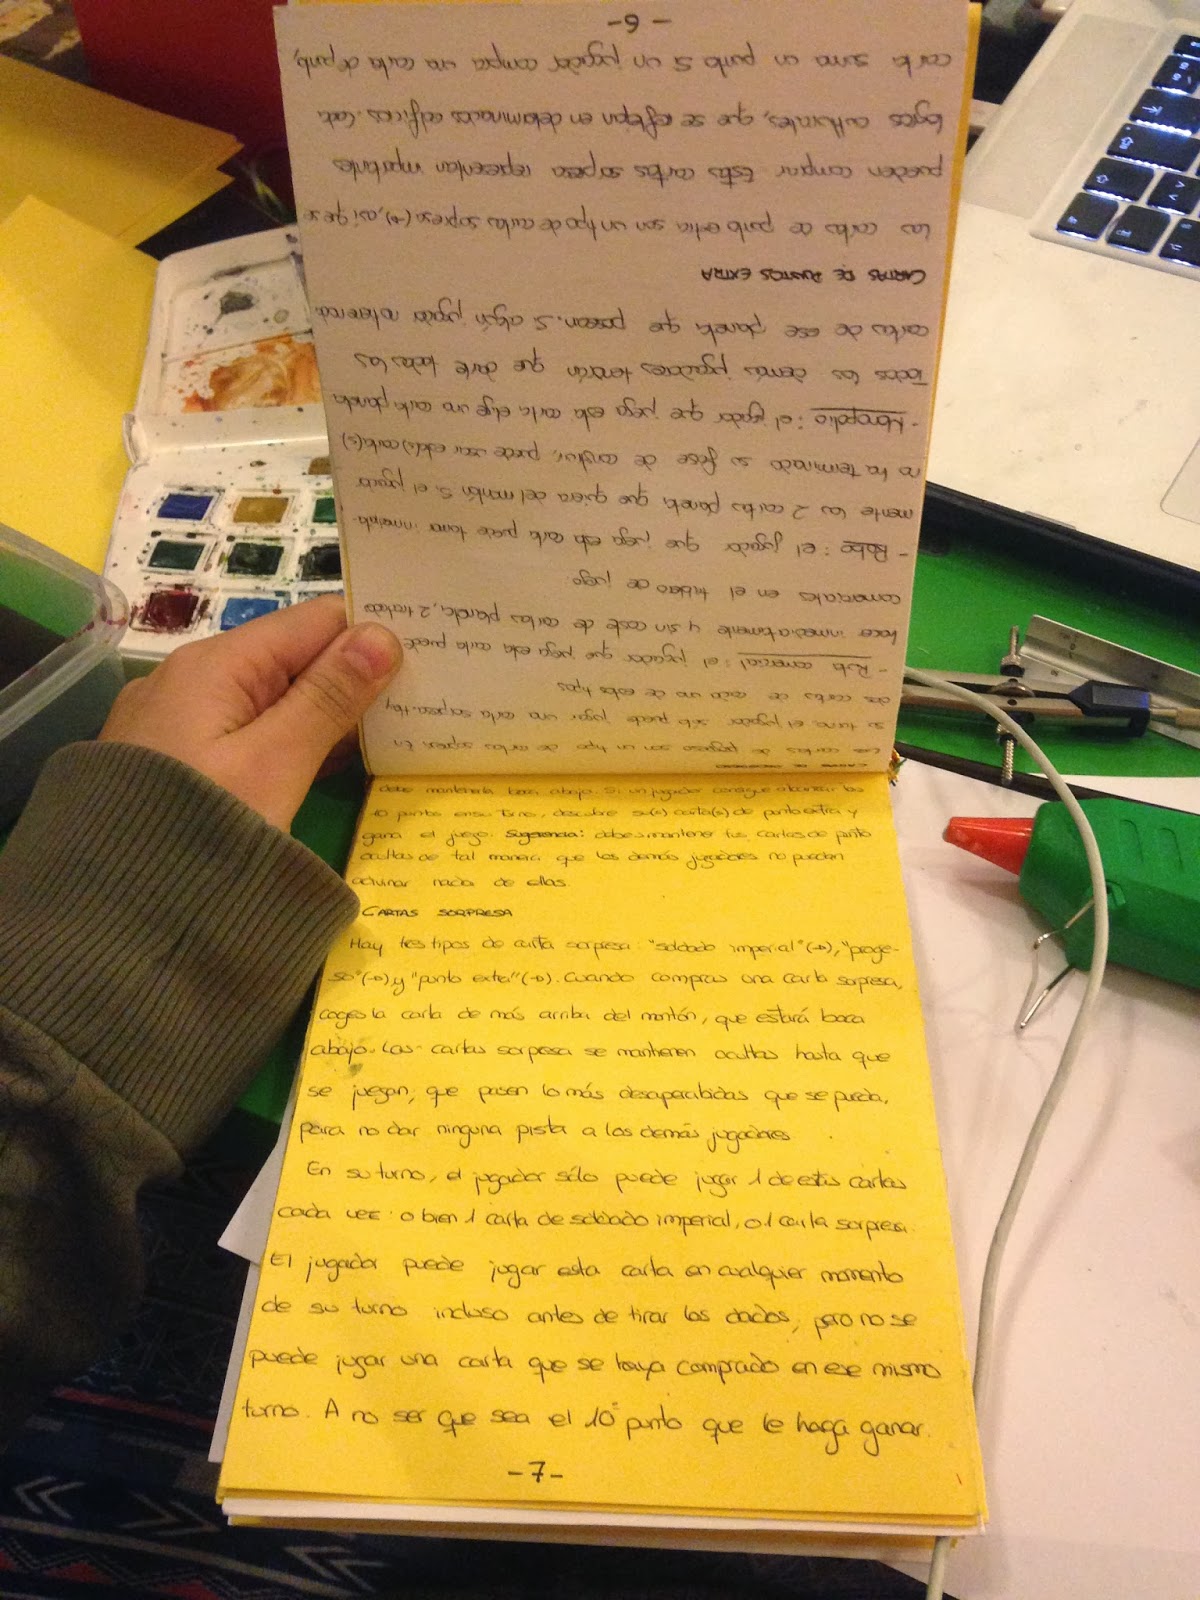 CARTAS DE PROGRESO
Las cartas de progreso son un tipo de cartas sorpresa. En
su turno, el jugador sólo puede jugar una carta sorpresa. Hay
dos cartas de cada una de estos tipos
- Ruta comercial: el jugador que juega esta carta puede
hacer inmediatamente y sin coste de cartas planeta, 2 tratados
comerciales en el tablero de juego.
- Robo: el jugador que juega esta carta puede tomar inmediata-
mente las 2 cartas planeta que quiera del montón. Si el jugador
no ha terminado su fase de construir, puede usar esta(s) carta(s)
- Monopolio: el jugador que juega esta carta elige una carta planeta
Todos los demás jugadores tendrán que darle todas las
cartas de ese planeta que posean. Si algún jugador no tiene nada
CARTAS DE PUNTOS EXTRA
Las cartas de punto extra son un tipo de cartas sorpresa (→), así que se
pueden comprar. Estas cartas sorpresa representan importantes
logros culturales, que se reflejan en determinados edificios. Cada
carta suma un punto. Si un jugador compra una carta de punto,
- 6 -
debe mantenerla boca abajo. Si un jugador consigue alcanzar los
10 puntos en su turno, descubre su(s) carta(s) de punto extra y
gana el juego. Sugerencia: debes mantener tus cartas de punto
ocultas de tal manera que los demás jugadores no puedan
adivinar nada de ellas.
CARTAS SORPRESA
Hay tres tipos de carta sorpresa: "soldado imperial" (→), "progre-
so" (→) y "punto extra" (→). Cuando compras una carta sorpresa,
coges la carta de más arriba del montón, que estará boca
abajo. Las cartas sorpresa se mantienen ocultas hasta que
se juegan, que pasen lo más desapercibidas que se pueda,
para no dar ninguna pista a los demás jugadores.
En su turno, el jugador sólo puede jugar 1 de estas cartas
cada vez: o bien 1 carta de soldado imperial, o 1 carta sorpresa.
El jugador puede jugar esta carta en cualquier momento
de su turno incluso antes de tirar los dados, pero no se
puede jugar una carta que se haya comprado en ese mismo
turno. A no ser que sea el 10º punto que le haga ganar.
- 7 -